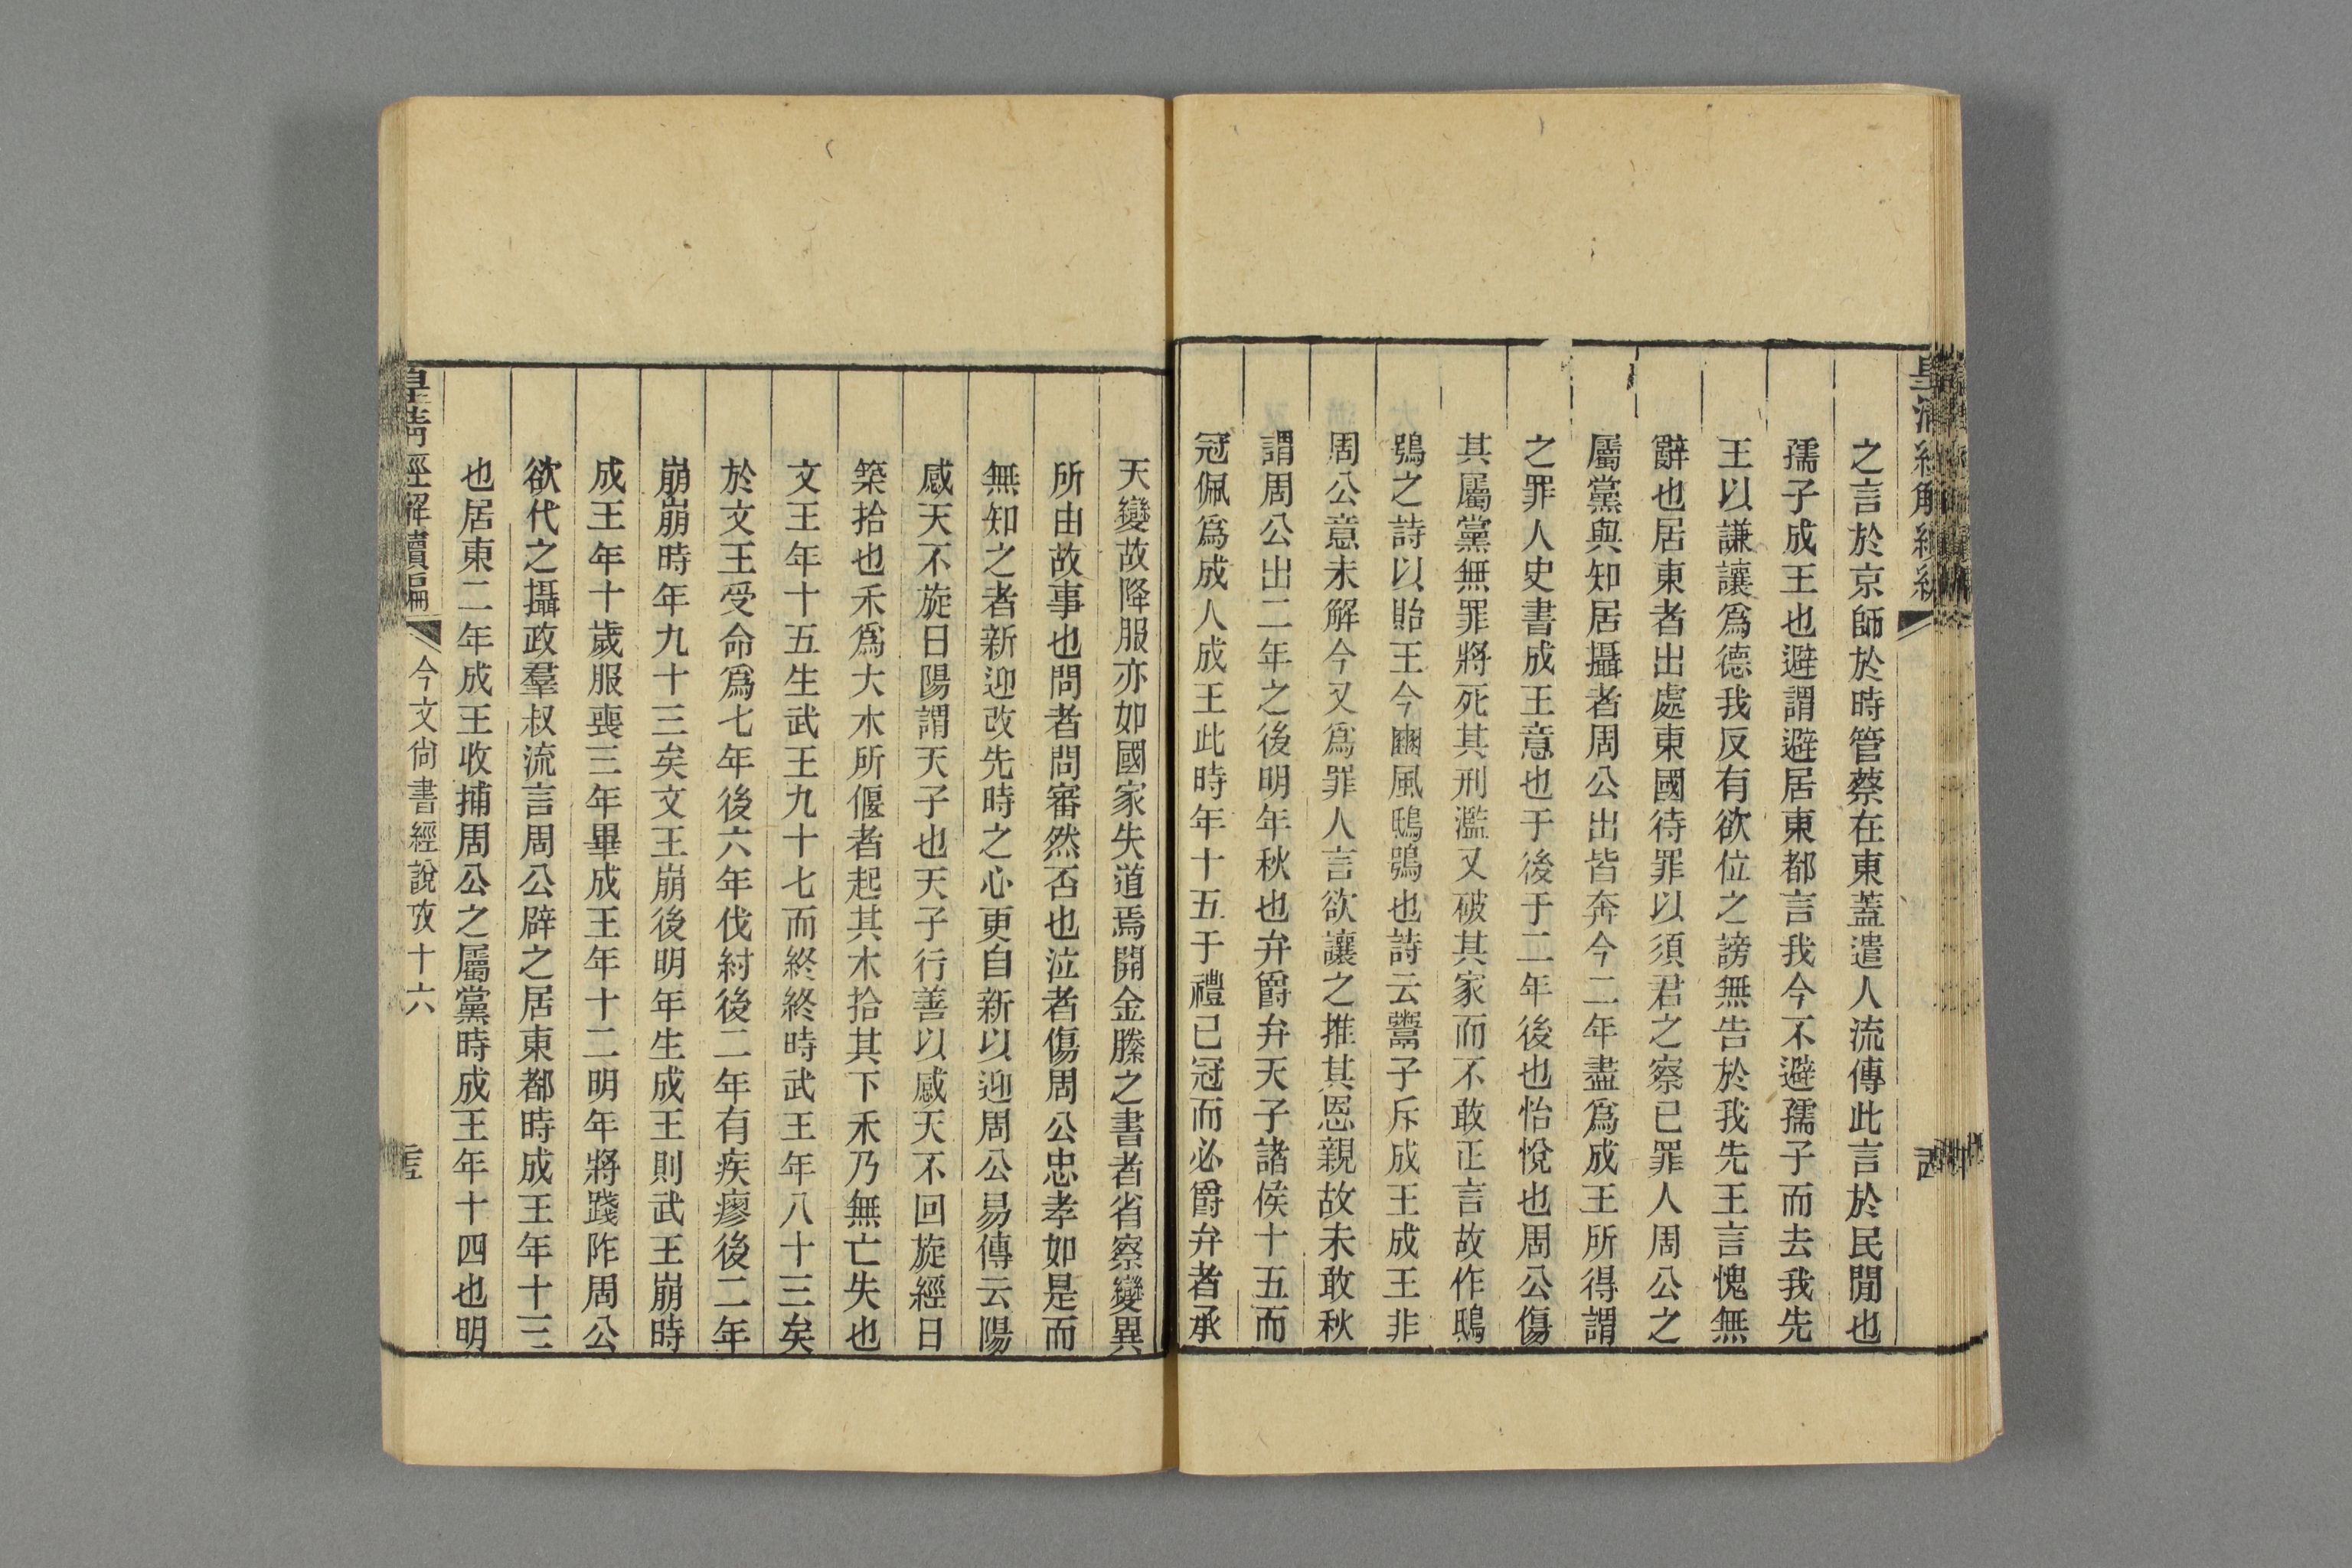 之言於京師於時管蔡在東蓋遣人流傳此言於民閒也
孺子成王也避謂避居東都言我今不避孺子而去我先
王以謙讓爲德我反有欲位之謗無告於我先王言愧無
辭也居東者出處東國待罪以須君之察已罪人周公之
屬黨與知居攝者周公出皆奔今二年盡爲成王所得謂
之罪人史書成王意也于後于二年後也怡悅也周公傷
其屬黨無罪將死其刑濫又破其家而不敢正言故作鴟
鴞之詩以貽王今豳風鴟鴞也詩云鬻子斥成王成王非
周公意未解今又爲罪人言欲讓之推其恩親故未敢秋
謂周公出二年之後明年秋也弁爵弁天子諸侯十五而
冠佩爲成人成王此時年十五于禮已冠而必爵弁者承
天變故降服亦如國家失道焉開金縢之書者省察變異
所由故事也問者問審然否也泣者傷周公忠孝如是而
無知之者新迎改先時之心更自新以迎周公易傳云陽
感天不旋日陽謂天子也天子行善以感天不回旋經日
築拾也禾爲大木所偃者起其木拾其下禾乃無亡失也
文王年十五生武王九十七而終終時武王年八十三矣
於文王受命爲七年後六年伐紂後二年有疾瘳後二年
崩崩時年九十三矣文王崩後明年生成王則武王崩時
成王年十歲服喪三年畢成王年十二明年將踐阼周公
欲代之攝政羣叔流言周公辟之居東都時成王年十三
也居東二年成王收捕周公之屬黨時成王年十四也明
皇清經解續編
今文尙書經說攷十六